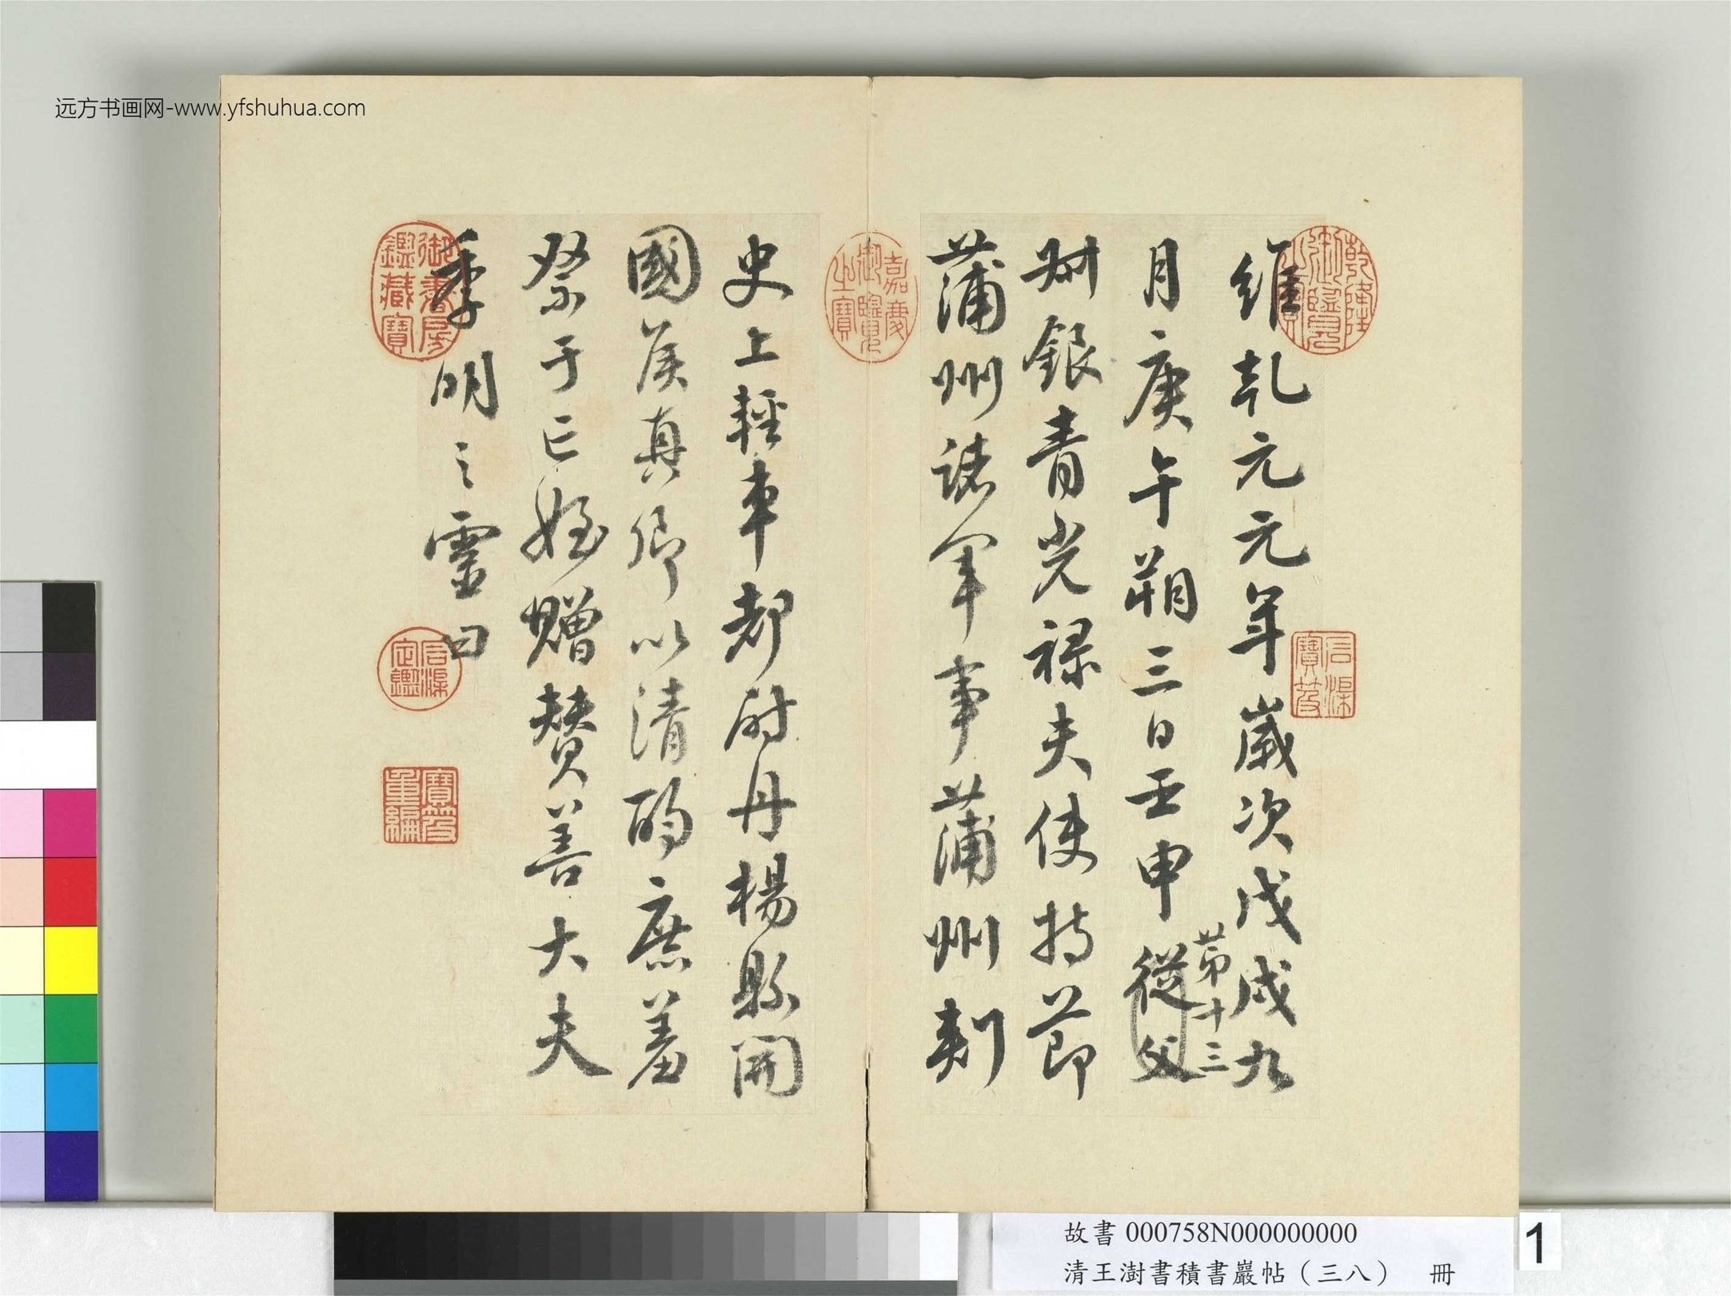 远方书画网-www.yfshuhua.com
維乹元元年歲次戊戌九
月庚午朔三日壬申從父
苐十三
㓝銀青光祿夫使持節
蒲州諸軍事蒲州刺
史上輕車都尉丹楊縣開
國侯真卿以清酌庶羞
祭于亡姪贈賛善大夫
季明之靈曰
乾隆御覽之寶
石渠寶笈
嘉慶御覽之寶
御書房鑑藏寶
石渠定鑑
寶笈重編
故書000758N000000000
清王澍書積書巖帖（三八） 冊
1